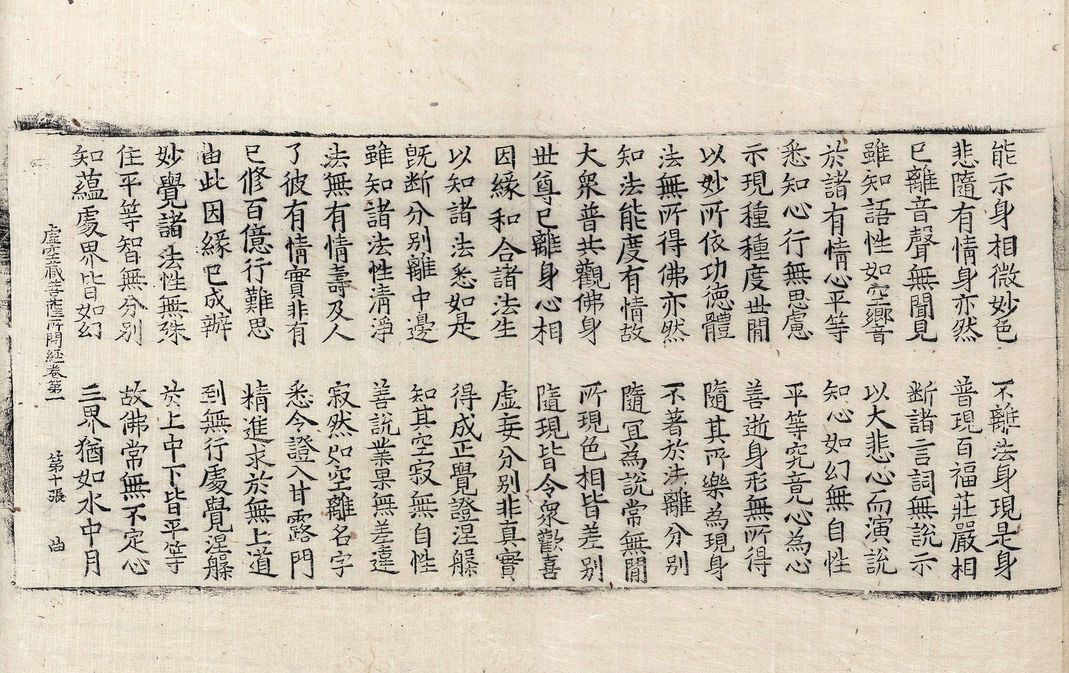 能示身相微妙色　不離法身現是身
悲隨有情身亦然　普現百福莊嚴相
已離音聲無聞見　断諸言詞無說示
雖知語性如空響　以大悲心而演說
於諸有情心平等　知心如幻無自性
悉知心行無思慮　平等究竟心為心
示現種種度世間　善逝身形無所得
以妙所依功德體　隨其所樂為現身
法無所得佛亦然　不著於法離分別
知法能度有情故　隨冝為說常無閒
大衆普共觀佛身　所現色相皆差別
世尊已離身心相　隨現皆令衆歡喜
因緣和合諸法生　虛妄分別非真實
以知諸法悉如是　得成正覺證涅槃
旣断分別離中邊　知其空寂無自性
雖知諸法性清淨　善說業果無差違
法無有情壽及人　寂然如空離名字
了彼有情實非有　悉令證入甘露門
已修百億行難思　精進求於無上道
由此因緣已成辦　到無行處覺涅槃
妙覺諸法性無殊　於上中下皆平等
住平等智無分別　故佛常無不定心
知蘊處界皆如幻　三界猶如水中月
虛空藏菩薩所問經卷第一　第十張